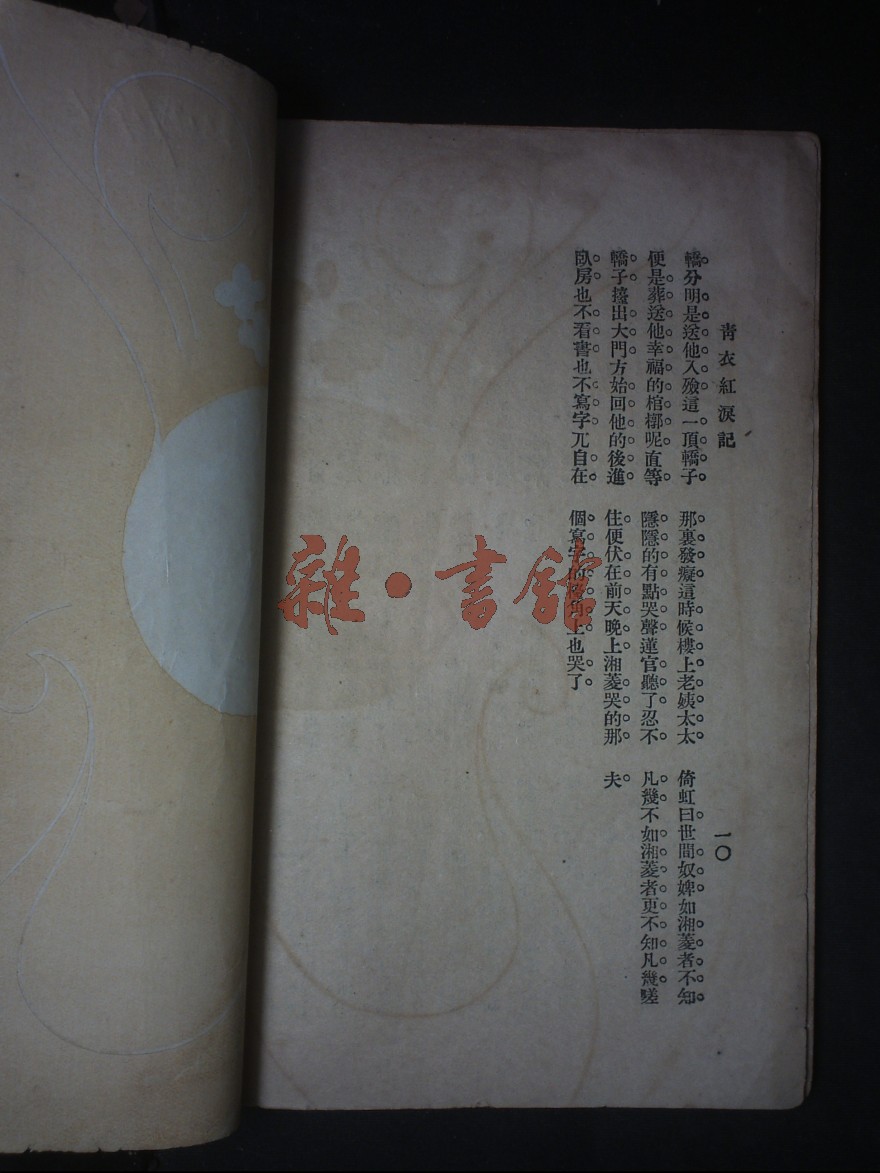 青衣紅淚記
轎。分明。是送。他入。殮。這一頂轎子
便是。葬。送。他。幸。福。的。棺。槨。呢。直等
轎。子。擡。出。大。門。方。始。回。他。的。後。進。
臥。房。也。不。看。書。也。不。寫。字。兀。自。在。
那。裏。發。癡。這。時。候。樓。上。老。姨。太。太。
隱。隱。的。有。點。哭。聲。蓮。官。聽。了。忍。不。
住。便。伏。在。前。天。晚。上。湘。菱。哭。的。那。
個。寫。字。的。檯。角。上。也。哭。了。
倚虹曰。世。間。奴。婢。如湘。菱。者。不。知。
凡。幾。不。如。湘。菱。者。更。不。知。凡。幾。嗟
夫。
一〇
雜·書館